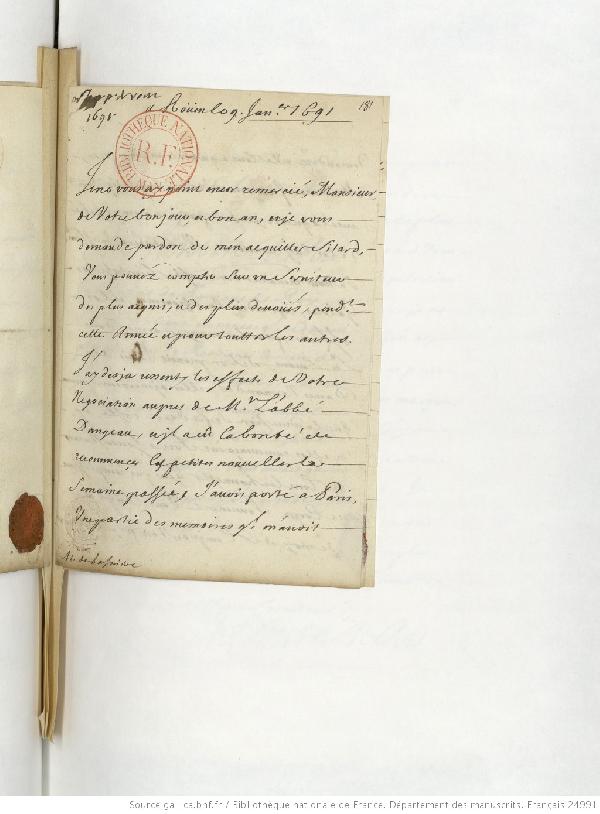 1691
A Roüen le 9. Jan.er 1691
181
BIBLIOTHEQUE NATIONALE
R.F.
Je ne vous ay point encor remercié, Monsieur
de Votre bonjour, et bon an, et je vous
demande pardon de m'en acquitter si tard,
Vous pouvez compter sur un serviteur
des plus acquis, et des plus devoüés, pend.t
cette Année et pour touttes les autres.
J'ay desja ressenty les effects de Votre
Negociation aupres de M.r L'abbé
Dangeau, et il a eu la bonté de
recommencer les petites nouvelles la
Semaine passée, J'avois porté a Paris,
Une partie des memoires q'il m'avoit
Source gallica.bnf.fr / Bibliothèque nationale de France. Département des manuscrits. Français 24991